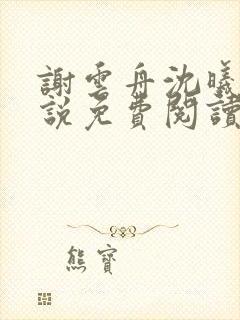 謝雲舟沈曦
說免費閱讀
熊寶